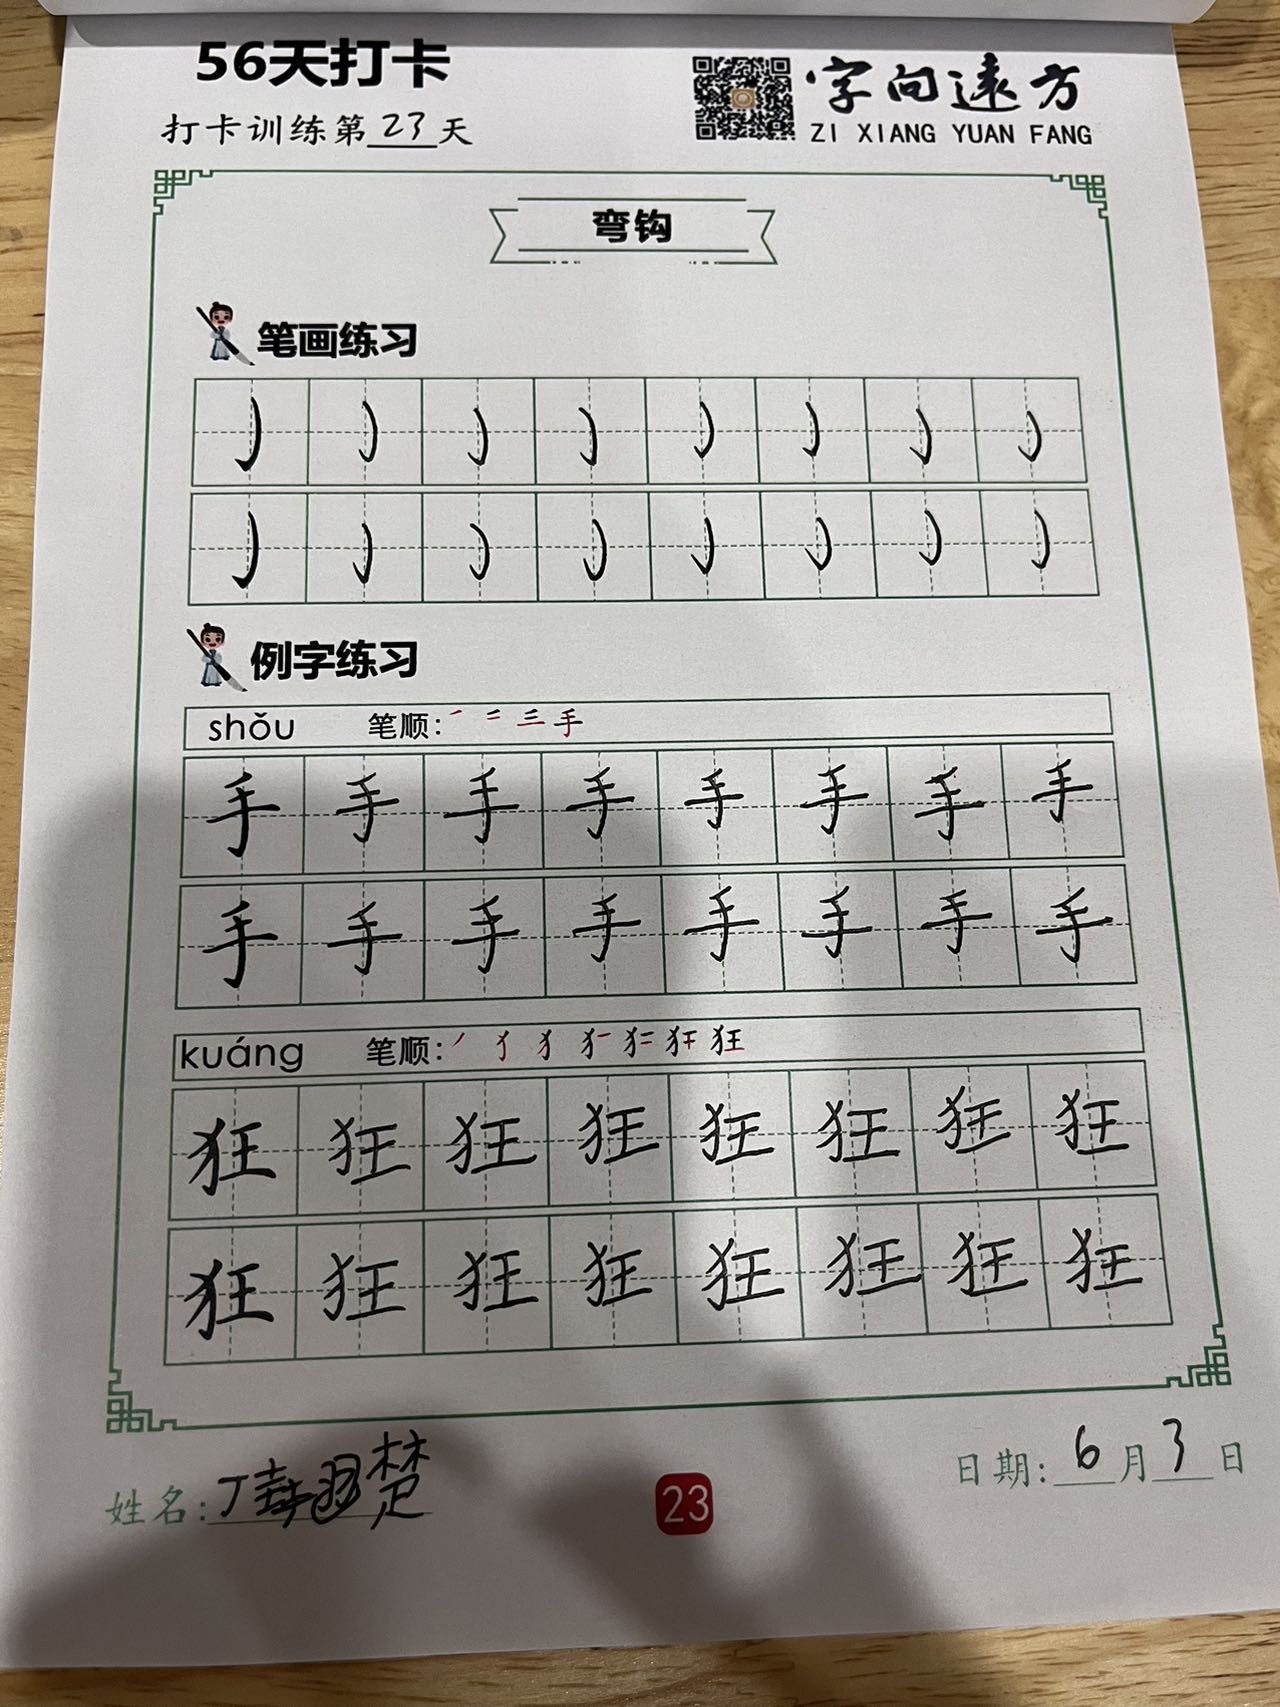 56天打卡
打卡训练第23天
字向远方
ZI XIANG YUAN FANG
弯钩
笔画练习
㇁ ㇁ ㇁ ㇁ ㇁ ㇁ ㇁ ㇁
㇁ ㇁ ㇁ ㇁ ㇁ ㇁ ㇁ ㇁
例字练习
shǒu 笔顺: 手
手 手 手 手 手 手 手 手
手 手 手 手 手 手 手 手
kuáng 笔顺: 狂
狂 狂 狂 狂 狂 狂 狂 狂
狂 狂 狂 狂 狂 狂 狂 狂
姓名: 丁 楚
23
日期: 6月3日